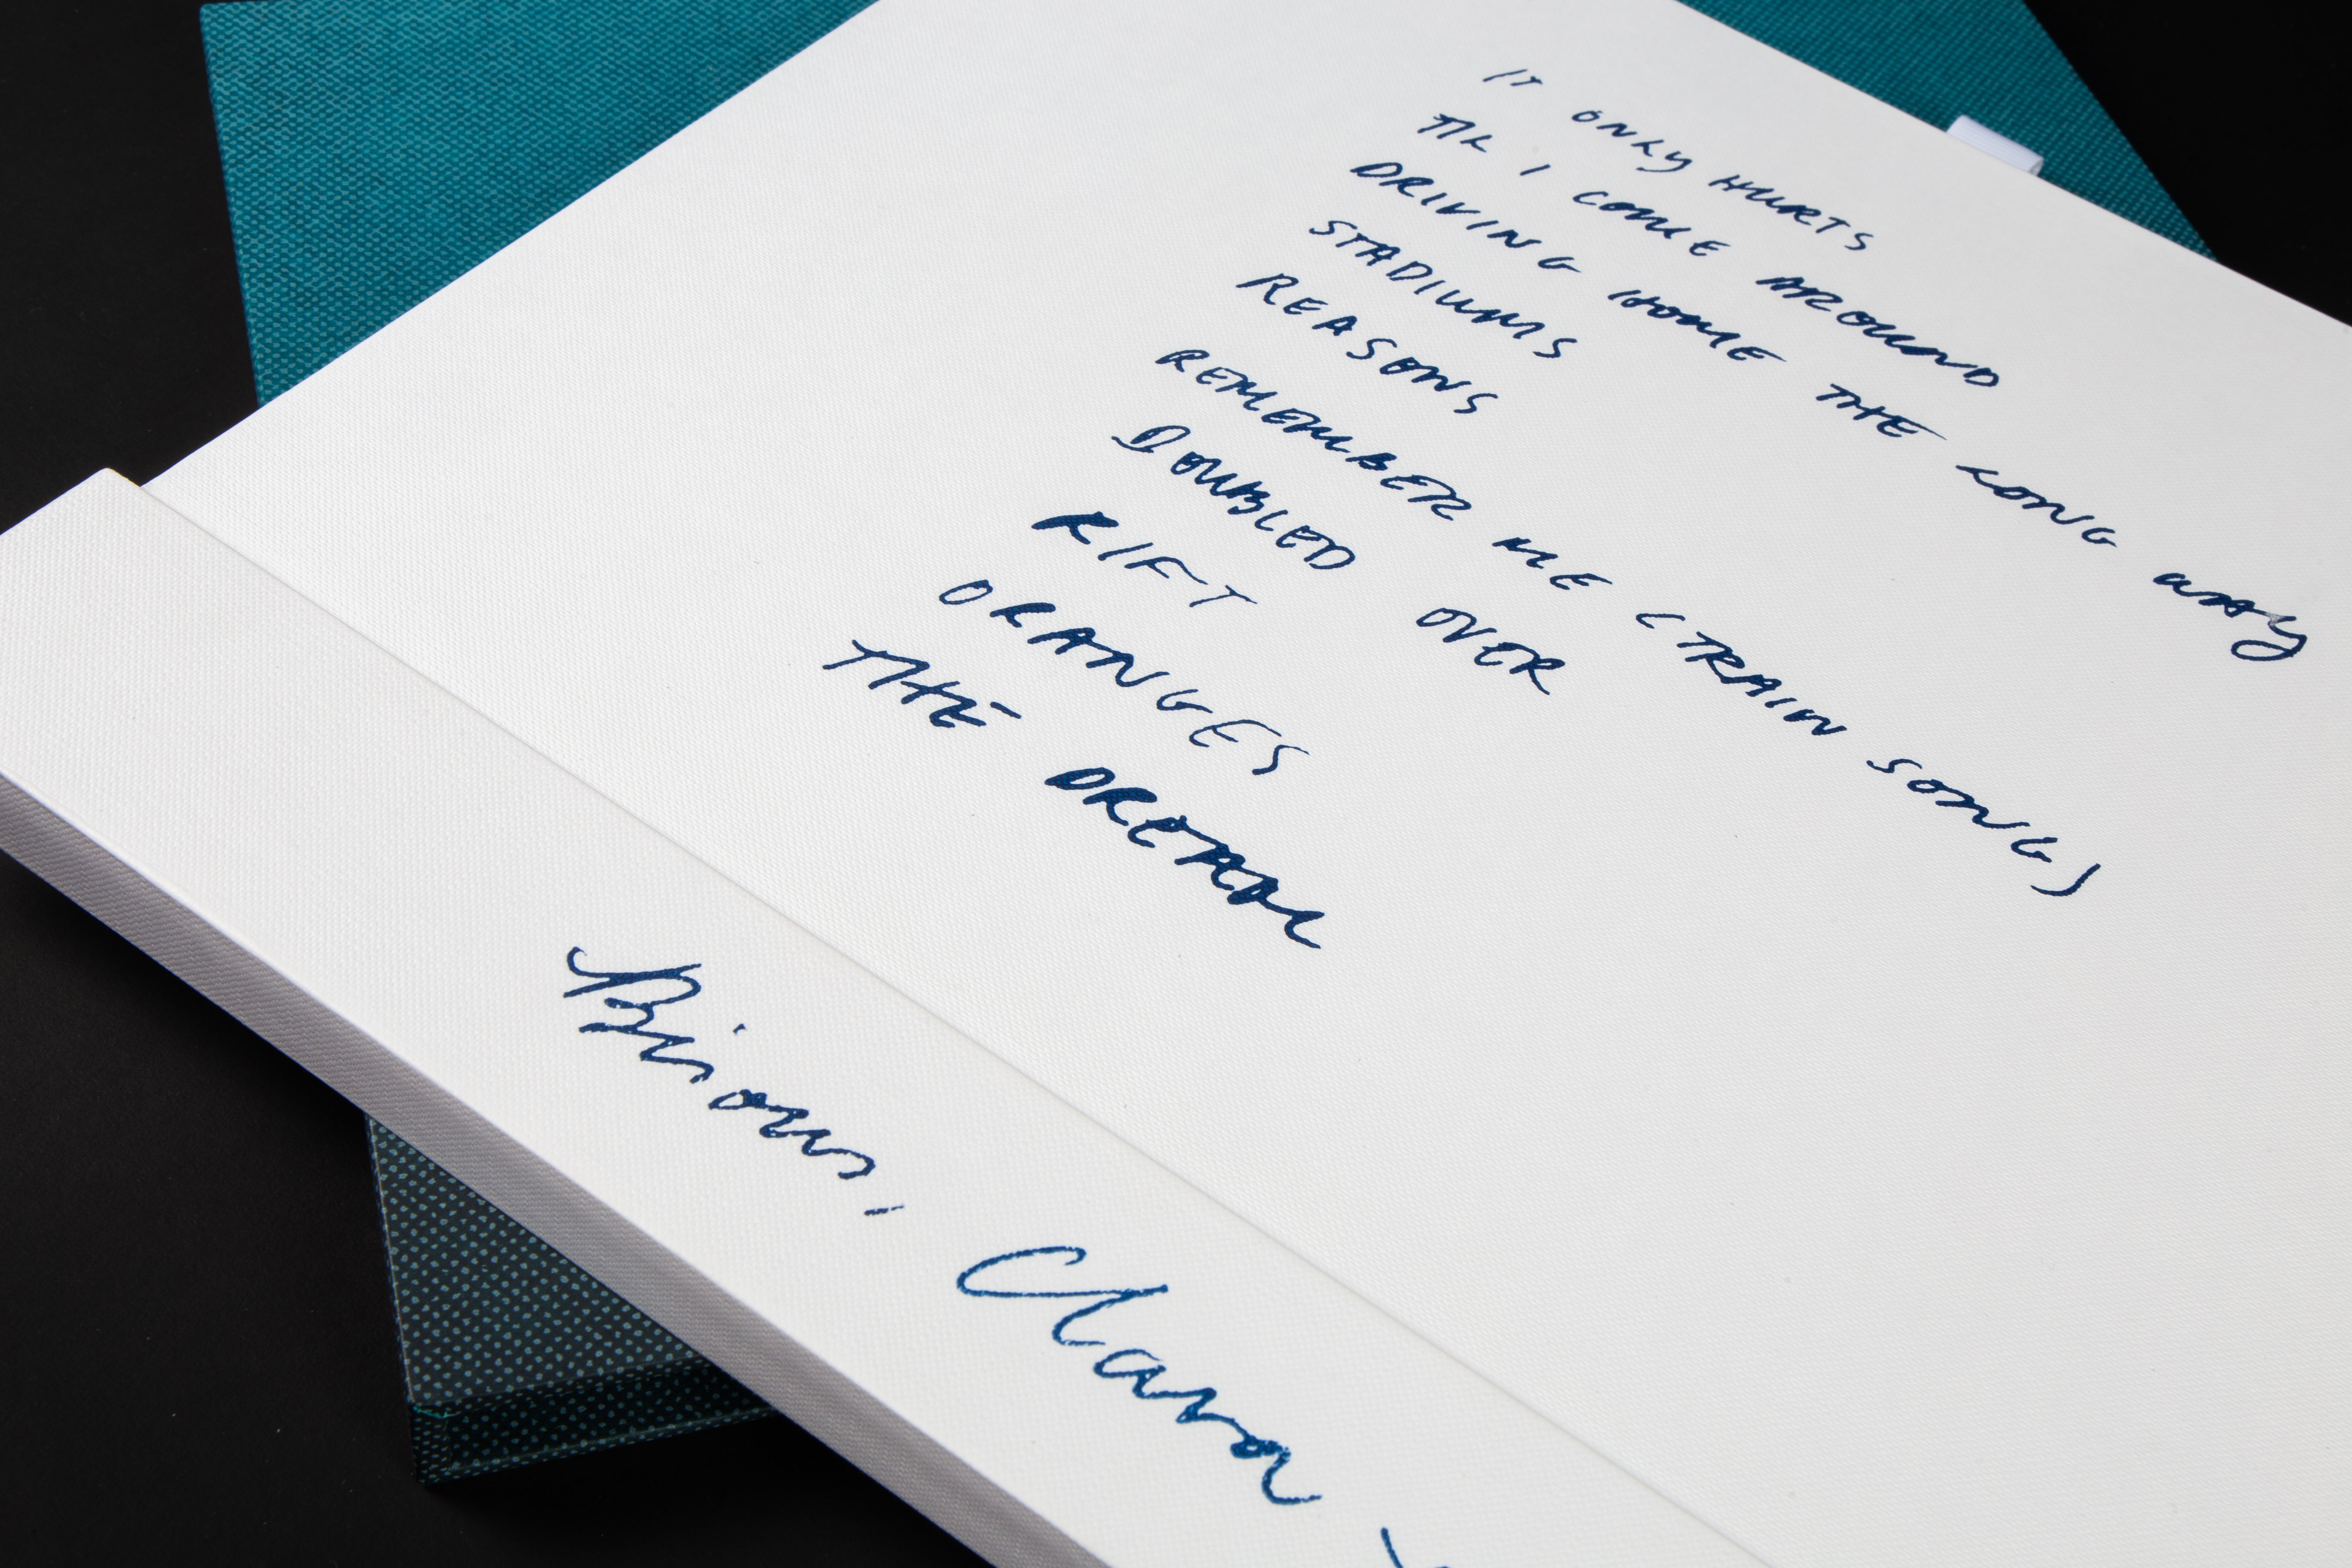 IT ONLY HURTS
TIL I COME AROUND
DRIVING HOME THE LONG WAY
STADIUMS
REASONS
REMEMBER ME (TRAIN SONG)
DOUBLED OVER
RIFT
ORANGES
THE DREAM
Clara